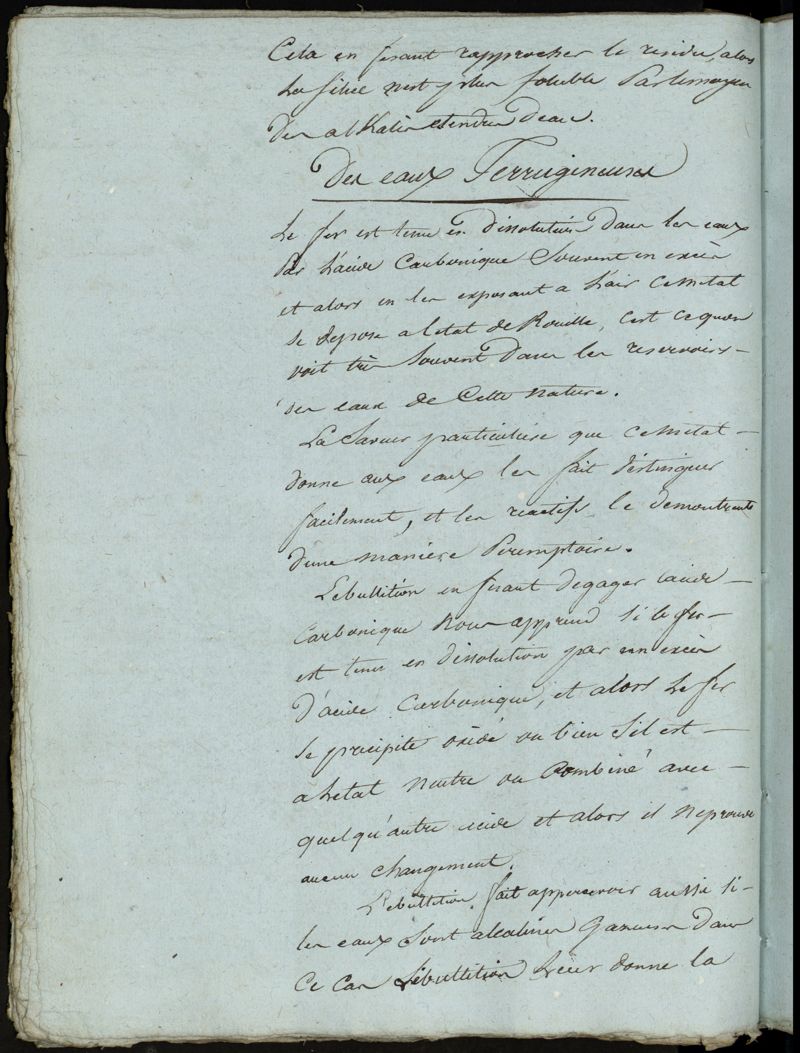 Cela en fesant rapprocher le residu, alors
La silice n'est plus soluble Par le moyen
Des alkalis etendus D'eau.
Des eaux Ferrugineuses
Le fer est tenu en Dissolution Dans les eaux
Par L'acide Carbonique Souvent en excès
et alors en les exposant a L'air ce metal
Se depose a letat de Rouille, c'est ce quon
voit très Souvent Dans les reservoirs
des eaux de Cette nature.
La Saveur particuliere que ce metal
donne aux eaux les fait distinguer
facilement, et les reactifs le demontrent
d'une maniere Peremptoire.
L'ebullition en fesant degager lacide
Carbonique Nous apprend Si le fer
est tenu en dissolution par un excès
D'acide Carbonique, et alors Le fer
Se précipite oxidé ou bien S'il est
a L'etat Neutre ou Combiné avec
quelqu'autre acide et alors il N'eprouve
aucun changement.
L'ebullition fait appercevoir aussi si
les eaux Sont alcalines Gazeuses Dans
Ce Cas L'ebullition Leur donne la